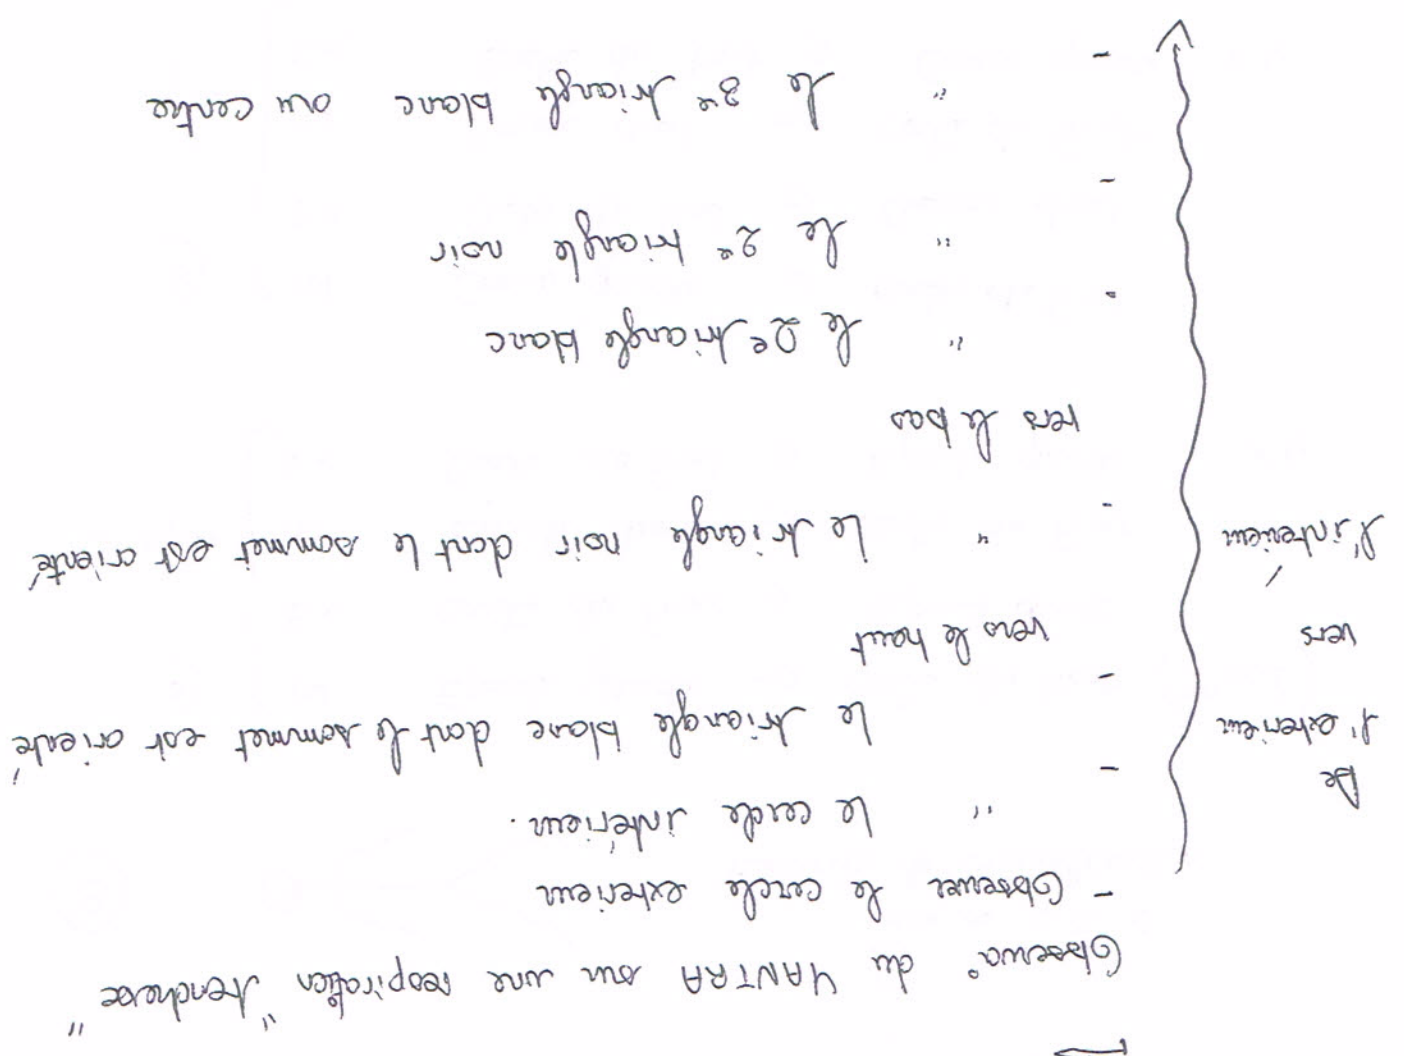 Observa° du YANTRA sur une respiration "trancheuse"
- Observer le cercle extérieur
- " le cercle intérieur.
- le triangle blanc dont le sommet est orienté
vers le haut
- " le triangle noir dont le sommet est orienté
vers le bas
- " le 2e triangle blanc
- " le 2e triangle noir
- " le 3e triangle blanc au centre
De
l'extérieur
vers
l'intérieur